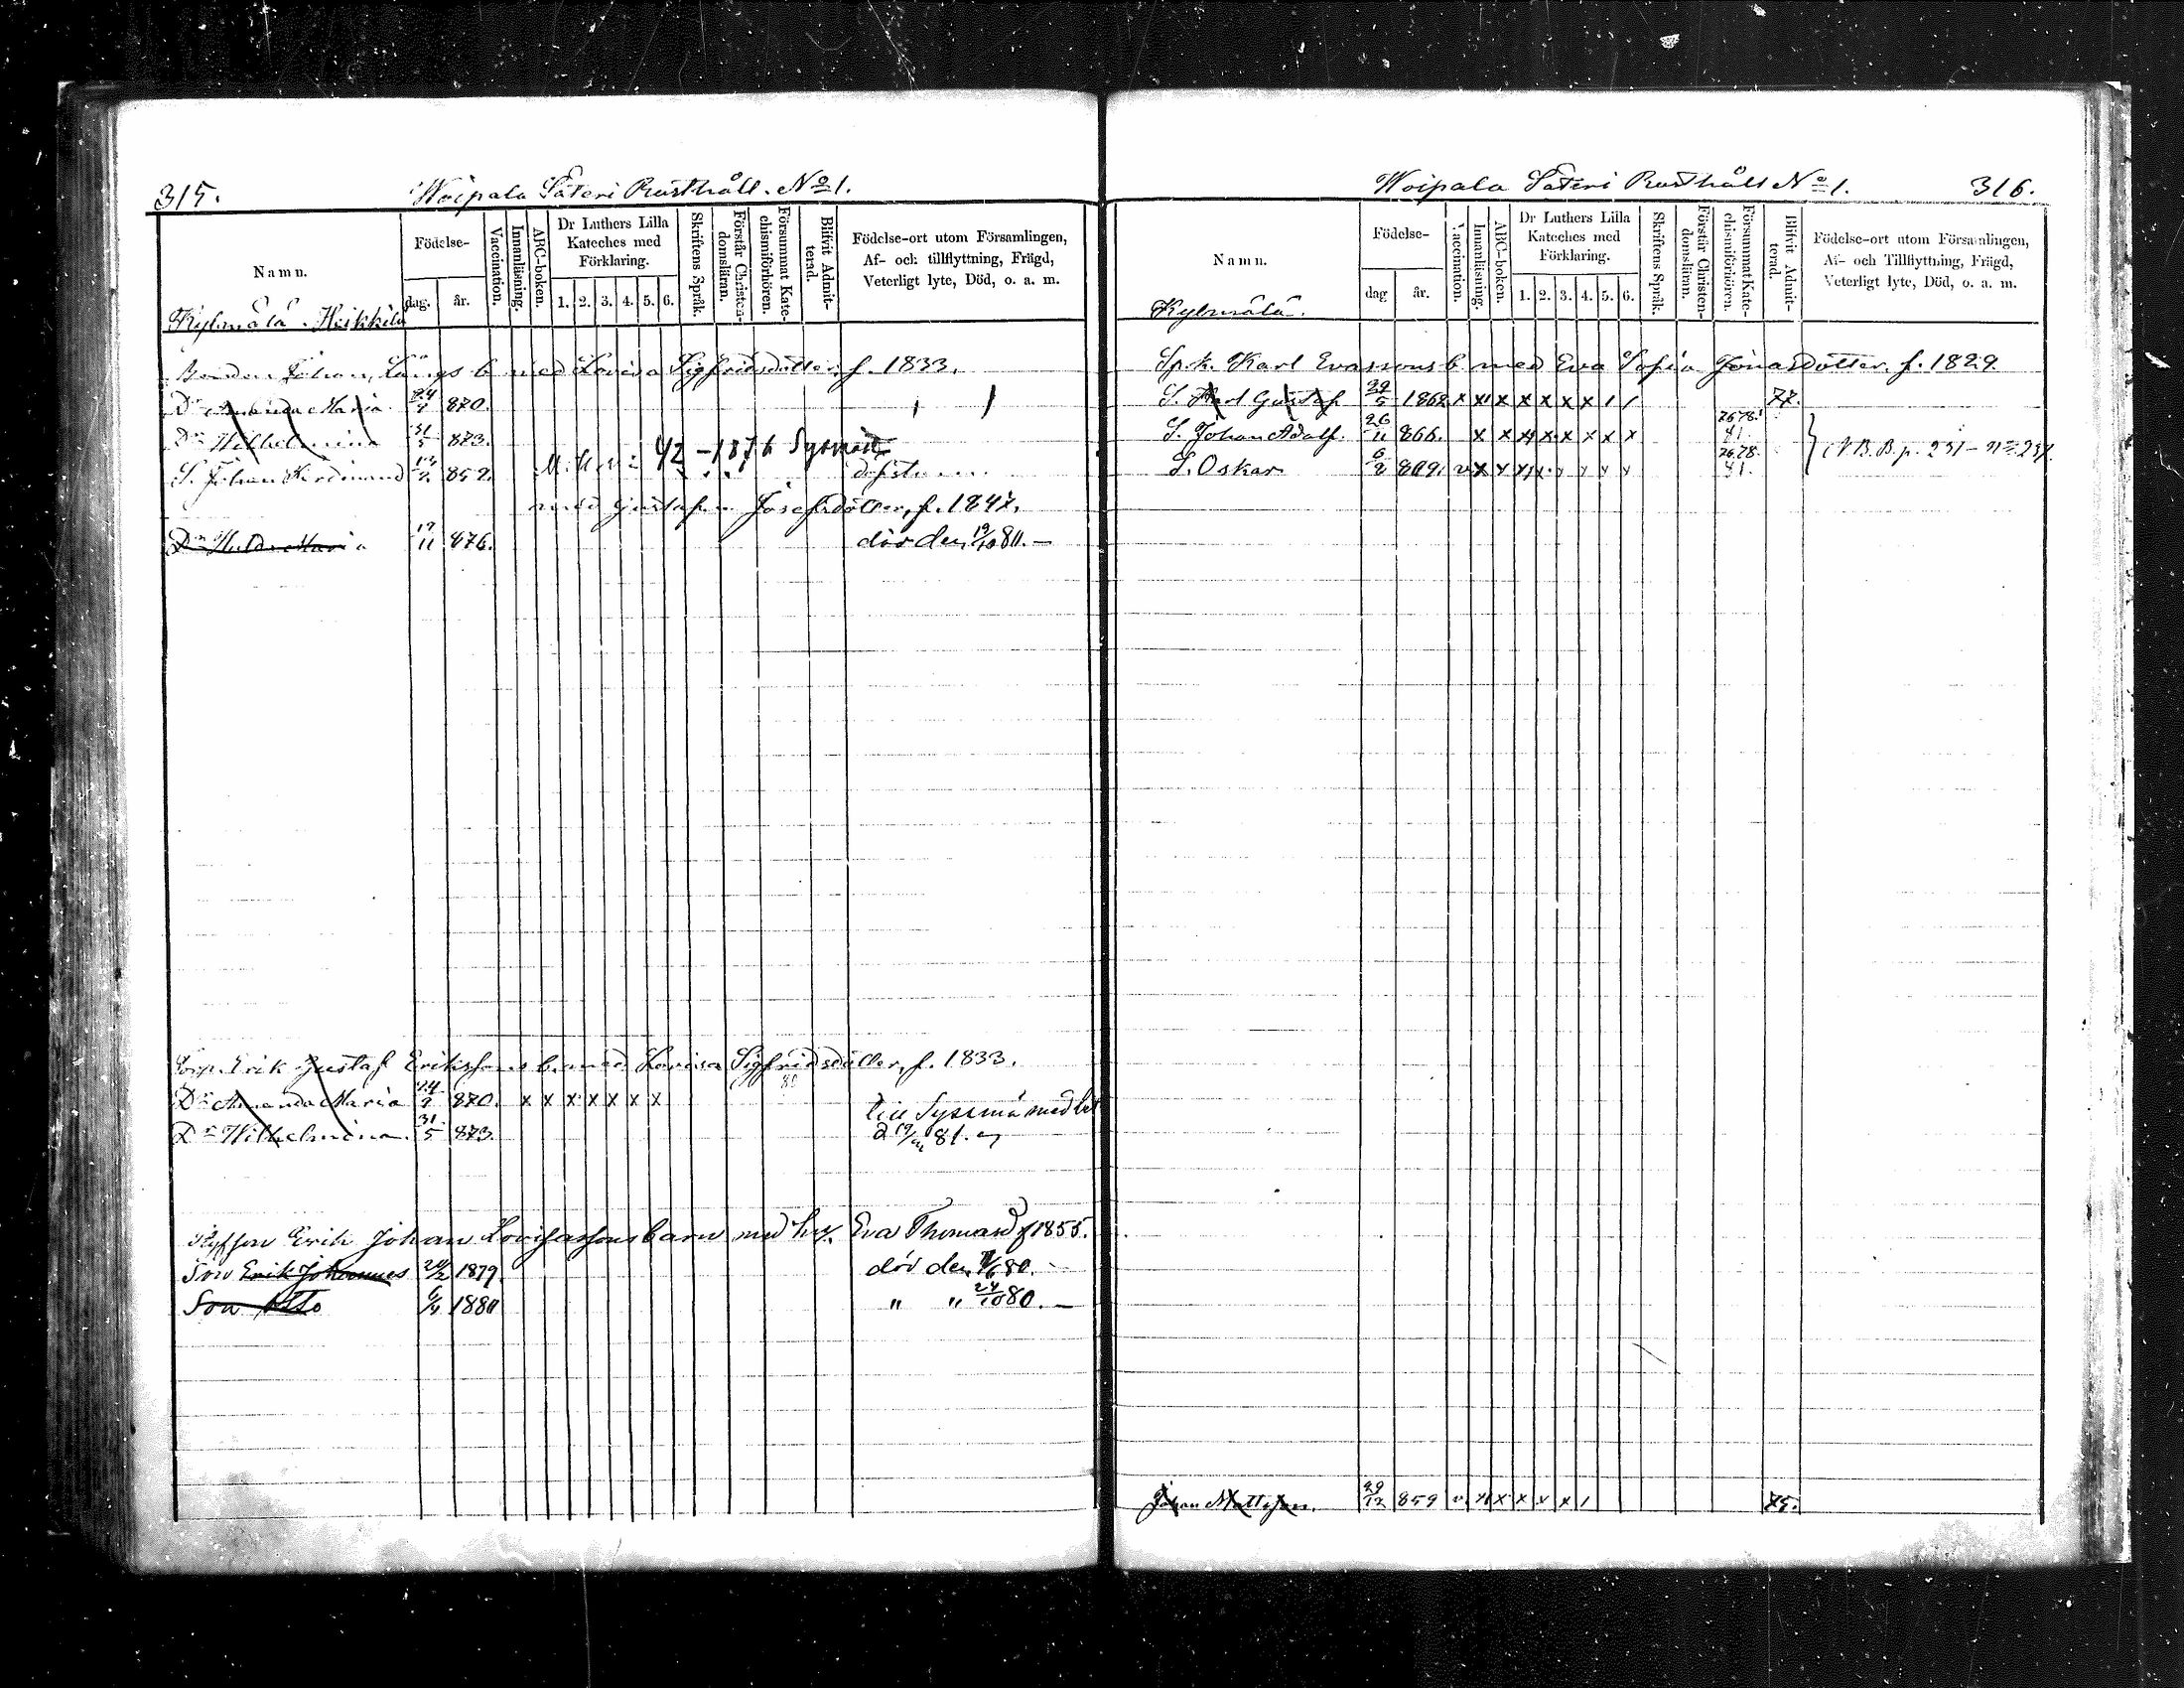 315.
Woipala Säteri Rusthåll. No 1.
Namn.
Födelse-
dag.
år.
Vaccination.
Innanläsning.
ABC-boken.
Dr Luthers Lilla
Kateches med
Förklaring.
1. 2. 3. 4. 5. 6.
Skriftens Språk.
Förstår Christen-
domsläran.
Försummat Kate-
chismiförhören.
Blifvit Admit-
terad.
Födelse-ort utom Församlingen,
Af- och tillflyttning, Frägd,
Veterligt lyte, Död, o. a. m.
Kylmälä Heikkilä
Bonden Johan b med Lovisa Sigfridsdotter f. 1833.
Dr Amanda Maria 870.
Dr Wilhelmina 31/5 873.
42 - 1876 Sysmä
S. Johan Ferdinand 852.
med Gustafva Josefsdotter, f. 1847.
Dr Hulda Maria 17/11 876. dör den 19/10 80. —
Torp. Erik Gustaf Erikssons b. med Lovisa Sigfridsdotter, f. 1833.
Dr Amanda Maria 870. x x x x x x x till Sysmä med bet
Dr Wilhelmina. 31/5 873. 81.
Erik Johan Lovisassons barn med hu. Eva Thomasd f 1855.
Son Erik Johannes 1879 dör den 80. -
Son Otto 1880 " " 24/10 80. —
Woipala Säteri Rusthåll No 1.
316.
Namn.
Födelse-
dag
år.
Vaccination.
Innanläsning.
ABC-boken.
Dr Luthers Lilla
Kateches med
Förklaring.
1. 2. 3. 4. 5. 6.
Skriftens Språk.
Förstår Christen-
domsläran.
Försummat Kate-
chismiförhören.
Blifvit Admit-
terad.
Födelse-ort utom Församlingen,
Af- och Tillflyttning, Frägd,
Veterligt lyte, Död, o. a. m.
Kylmälä.
Sp.k. Karl Evassons b med Eva Sofia Jonasdotter. f. 1829.
S. Karl Gustaf 29/5 1862 x x x x x x x 77.
S. Johan Adolf. 26/11 866. x x x x x x x 76 78. 81.
S. Oskar 869. v x x x 76. 78. 81. N.B. B. p. 231
Johan Mattsson. 29/12 859 v. x x x x x 75.